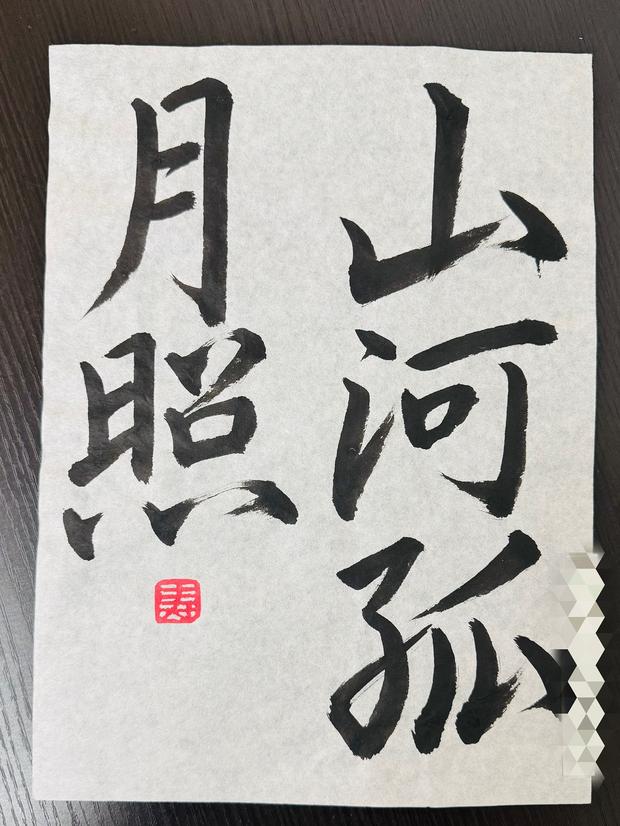 山河孤
月照
寿